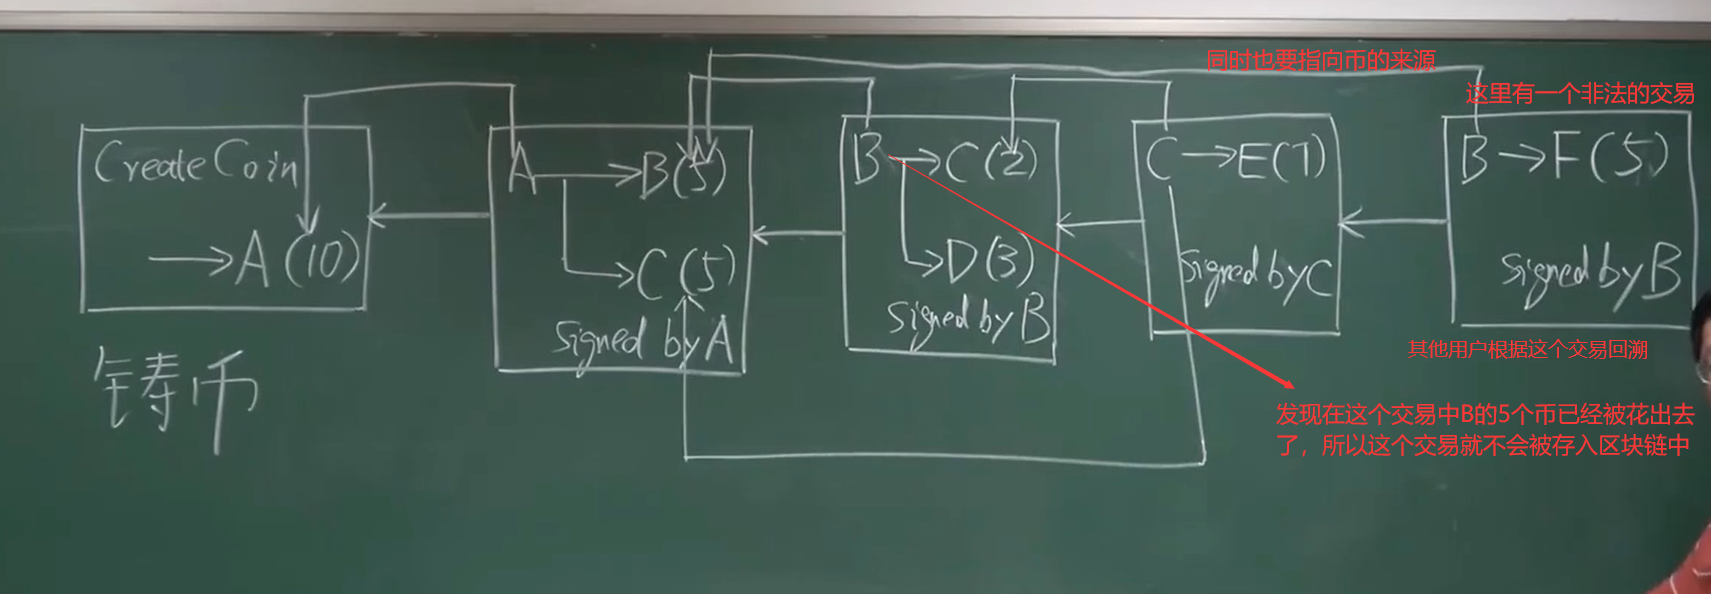 同时也要指向币的来源
这里有一个非法的交易
Create Coin
→A(10)
铸币
A→B(5)
→C(5)
signed by A
B→C(2)
→D(3)
signed by B
C→E(7)
signed by C
B→F(5)
signed by B
其他用户根据这个交易回溯
发现在这个交易中B的5个币已经被花出去
了，所以这个交易就不会被存入区块链中